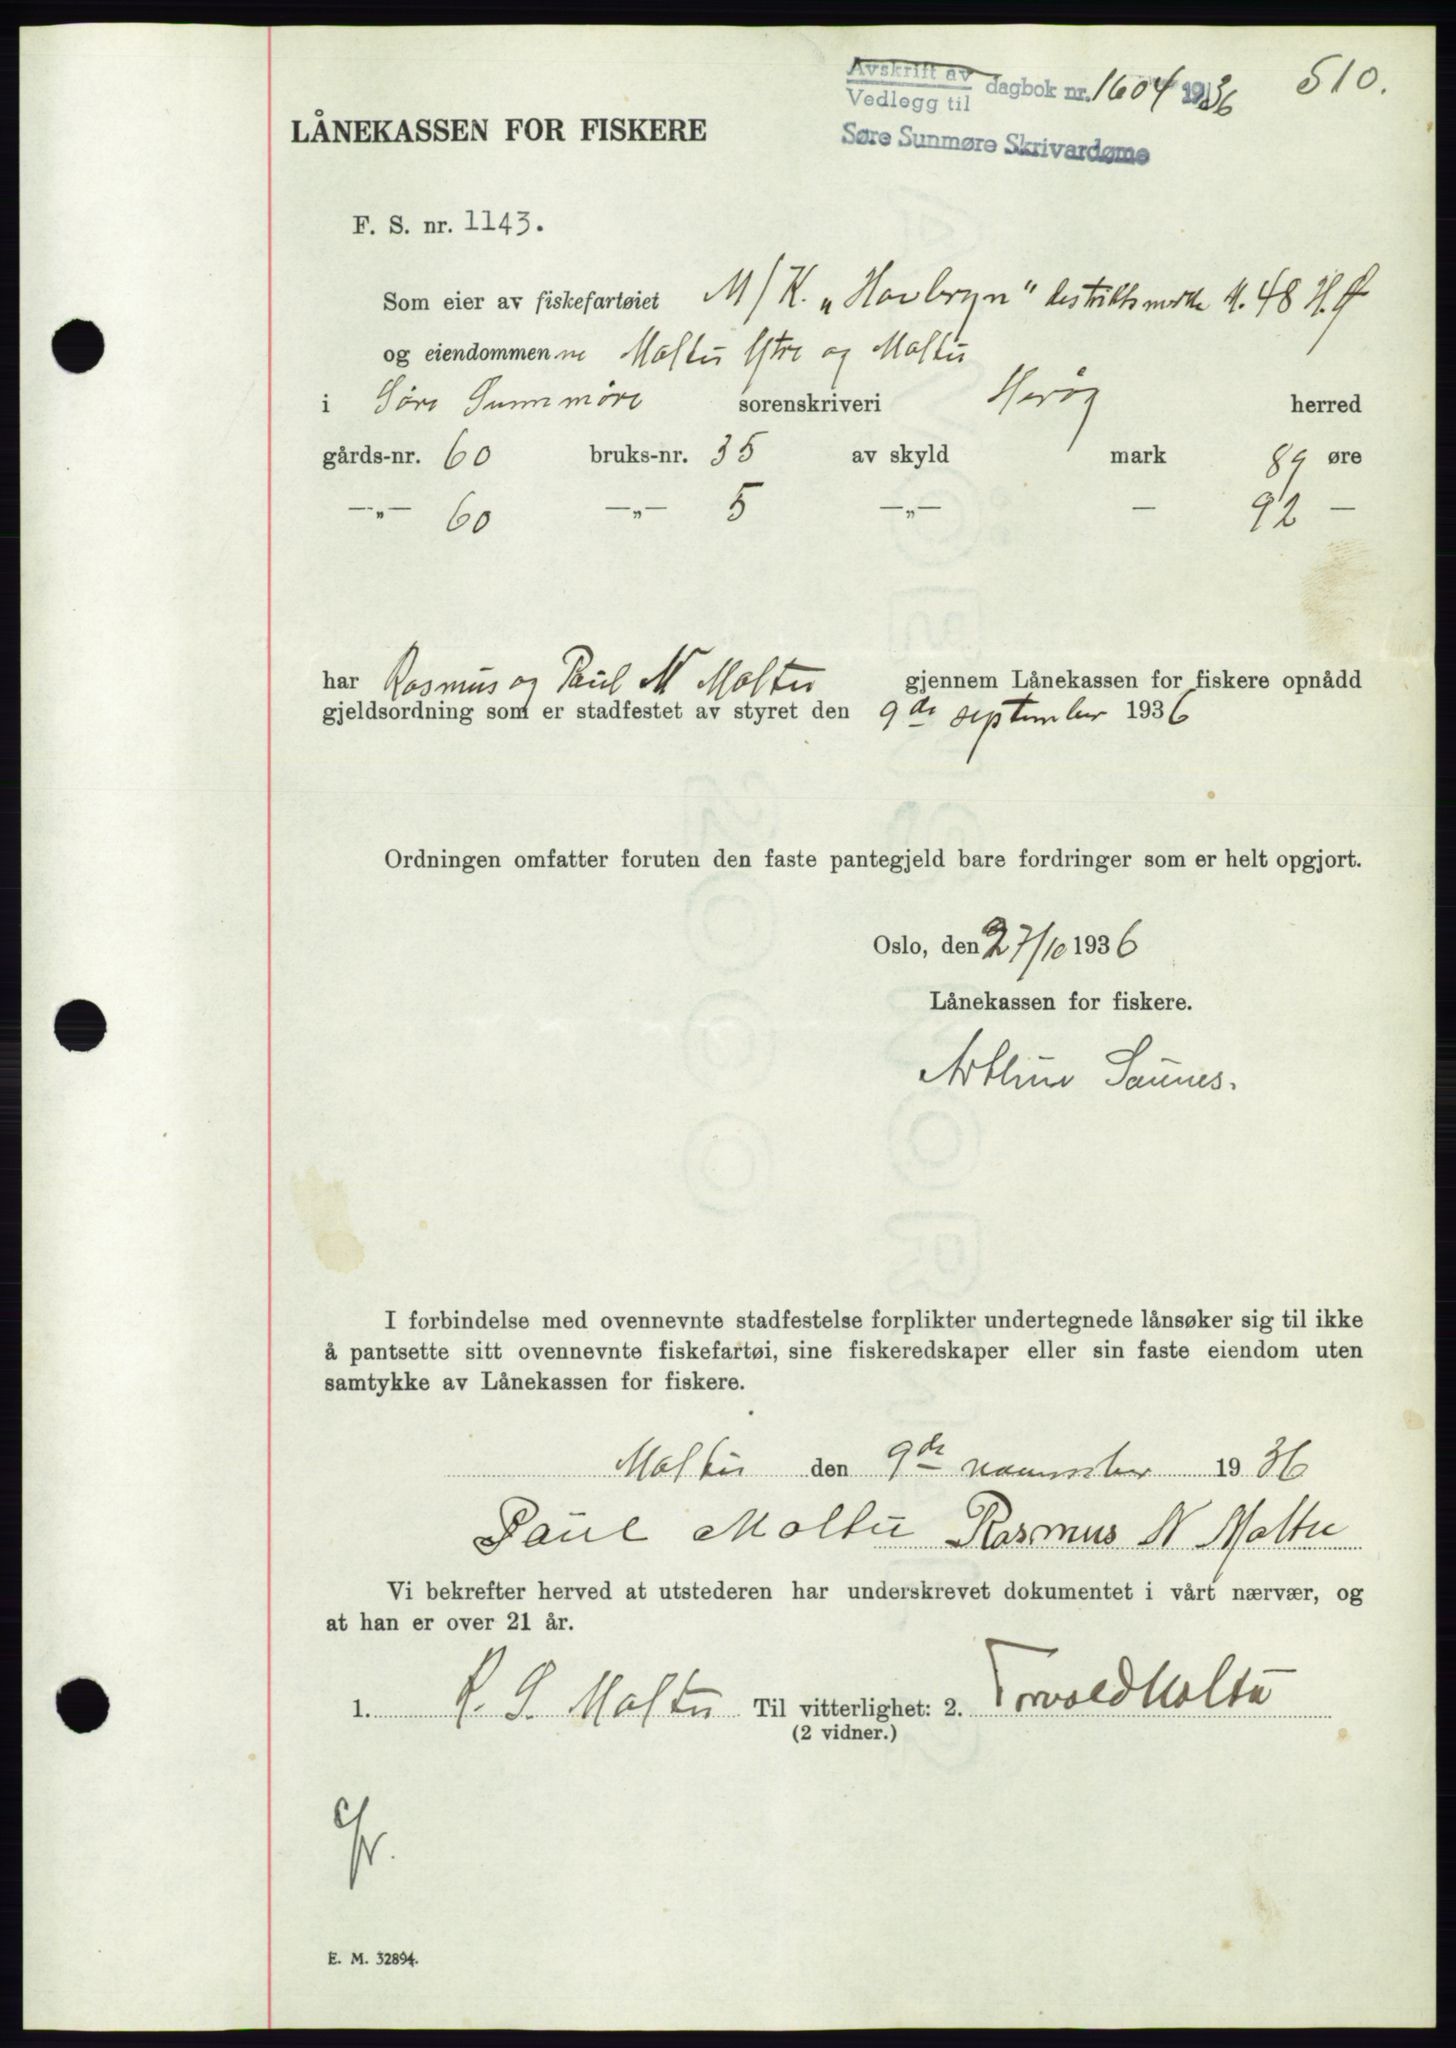 510.
Avskrift av
Vedlegg til dagbok nr. 1604 1936
Søre Sunmøre Skrivardøme
LÅNEKASSEN FOR FISKERE
F. S. nr. 1143.
Som eier av fiskefartøiet M/K. „Havbryn" distriktsmerke M. 48 H.Ø
og eiendommenne Moltu Ytre og Moltu
i Søre Sunnmøre sorenskriveri Herøy herred
gårds-nr. 60 bruks-nr. 35 av skyld mark 89 øre
—„— 60 —„— 5 —„— — 92 —
har Rasmus og Paul N Moltu gjennem Lånekassen for fiskere opnådd
gjeldsordning som er stadfestet av styret den 9de september 1936
Ordningen omfatter foruten den faste pantegjeld bare fordringer som er helt opgjort.
Oslo, den 27/10 1936
Lånekassen for fiskere.
Arthur Saunes.
I forbindelse med ovennevnte stadfestelse forplikter undertegnede lånsøker sig til ikke
å pantsette sitt ovennevnte fiskefartøi, sine fiskeredskaper eller sin faste eiendom uten
samtykke av Lånekassen for fiskere.
Moltu den 9de november 1936
Paul Moltu Rasmus N Moltu
Vi bekrefter herved at utstederen har underskrevet dokumentet i vårt nærvær, og
at han er over 21 år.
1. R. S. Moltu Til vitterlighet: 2. Torvald Moltu
(2 vidner.)
E. M. 32894.